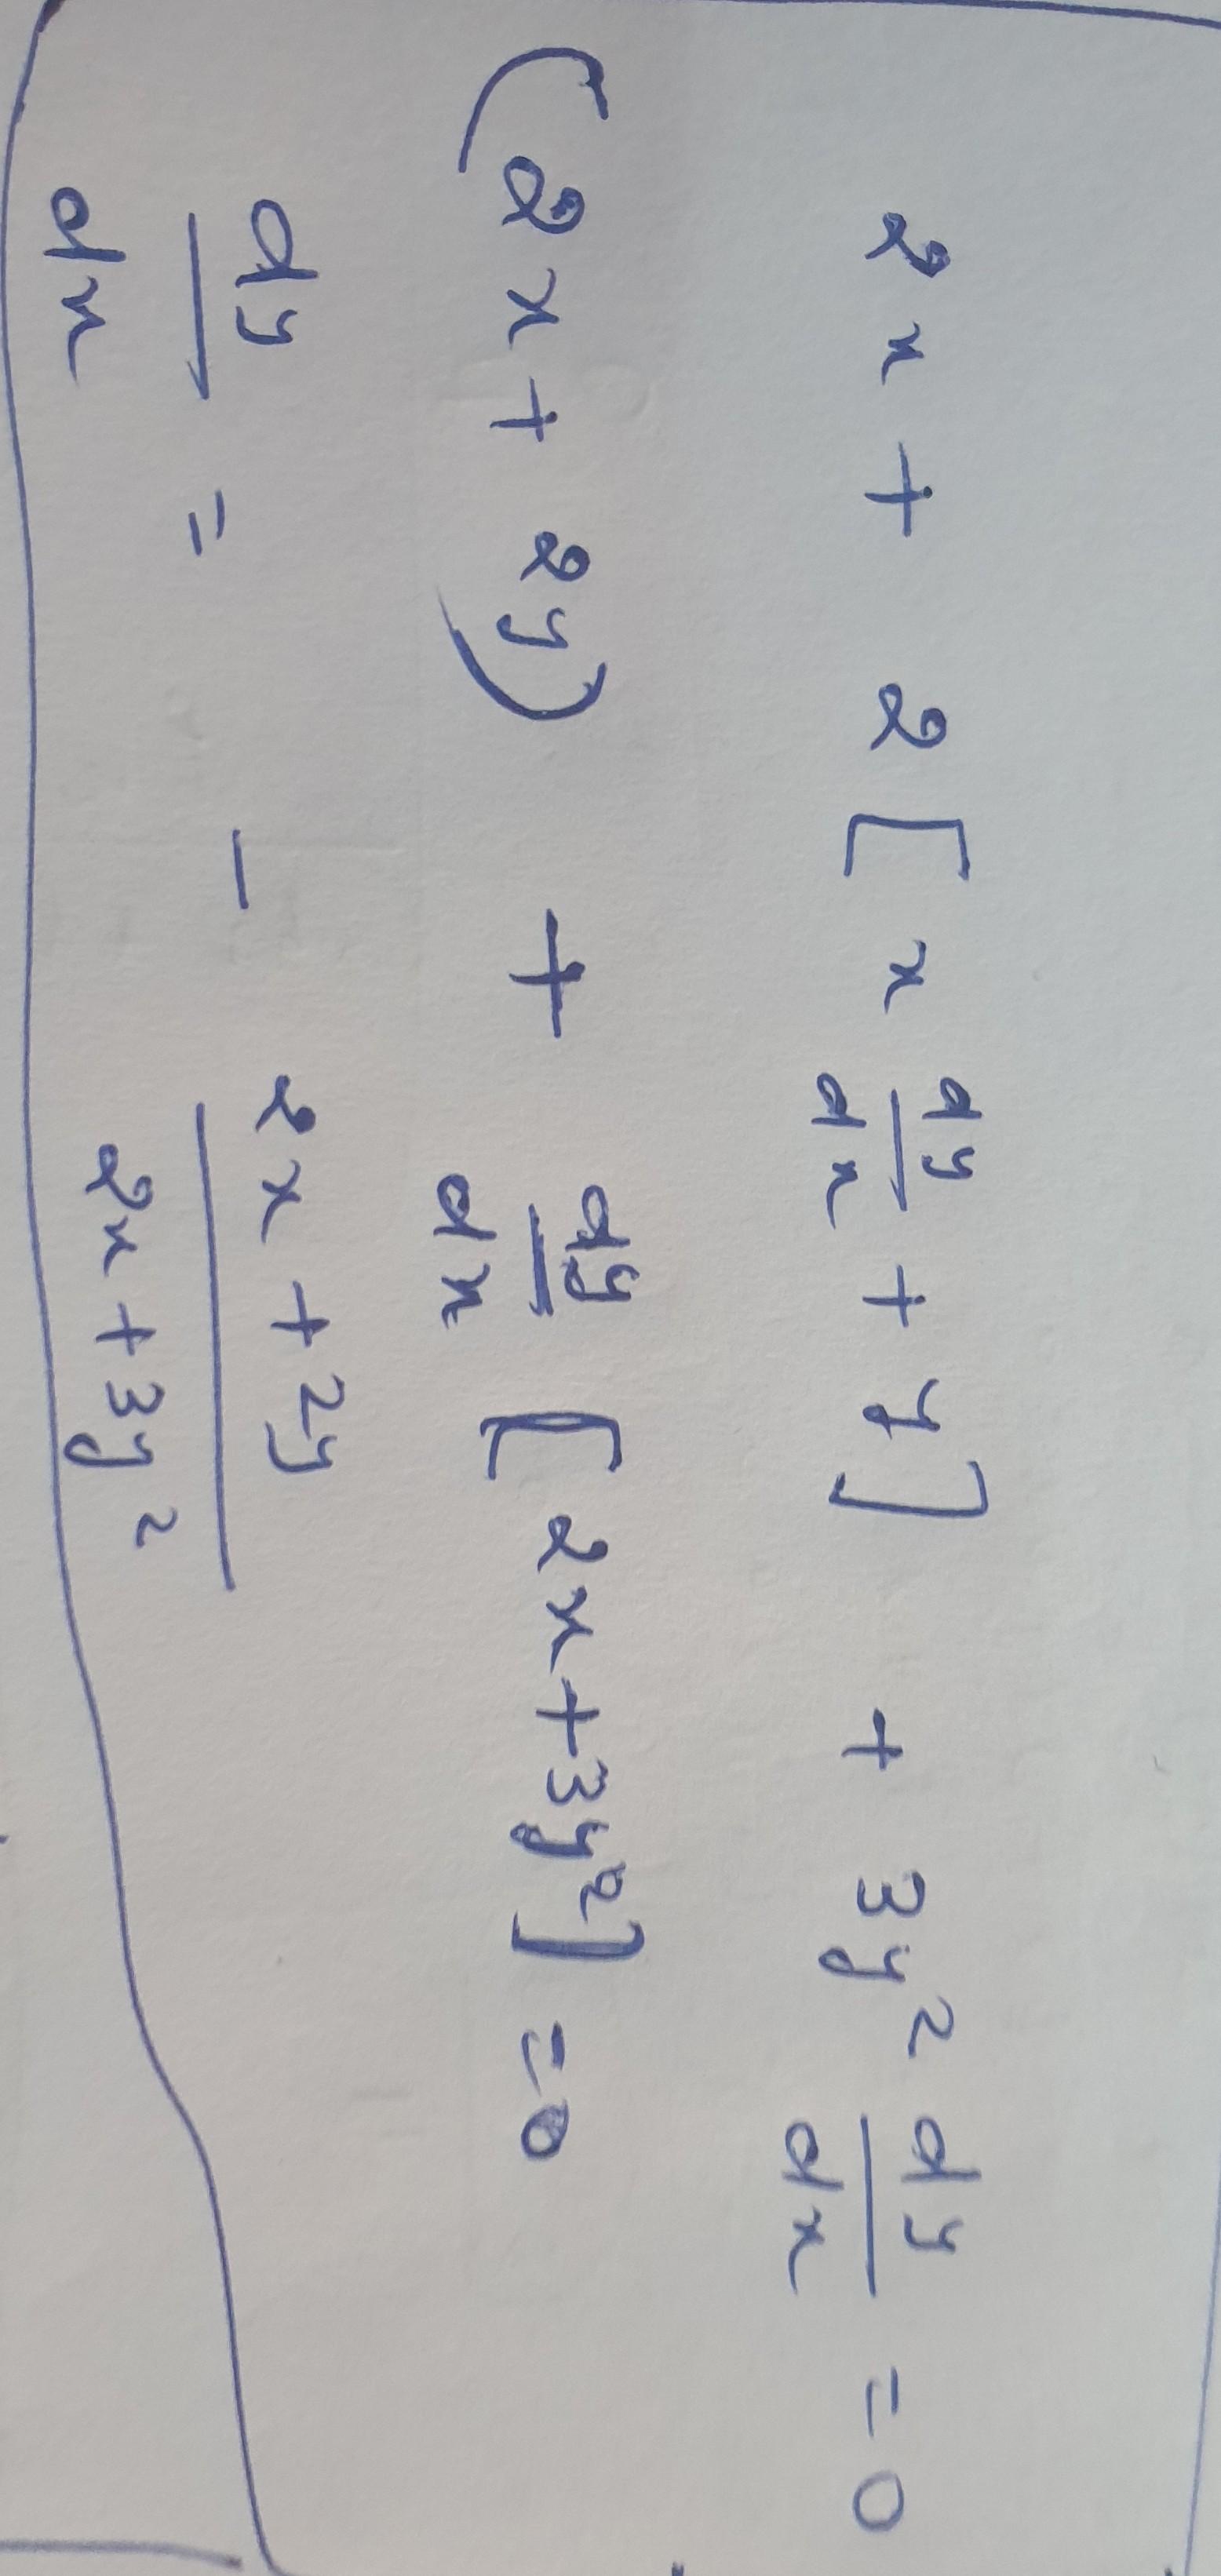 2x + 2[x dy/dx + y] + 3y² dy/dx = 0
(2x + 2y) + dy/dx [2x + 3y²] = 0
dy/dx = - (2x + 2y)/(2x + 3y²)